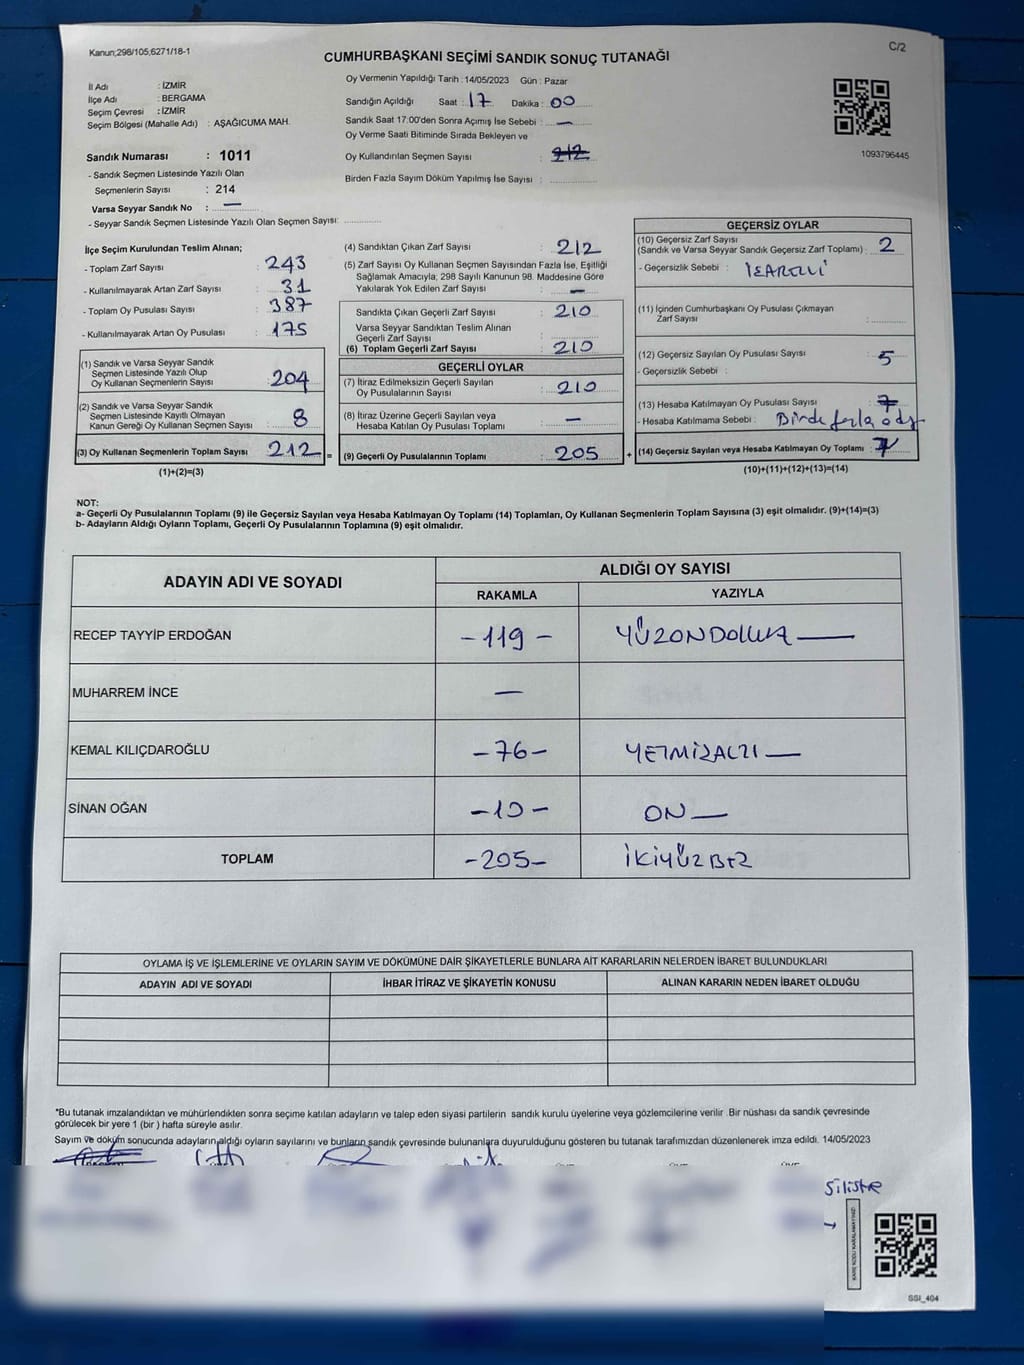 Kanun;298/105,6271/18-1
C/2
CUMHURBAŞKANI SEÇİMİ SANDIK SONUÇ TUTANAĞI
İl Adı : İZMİR
İlçe Adı : BERGAMA
Seçim Çevresi : İZMİR
Seçim Bölgesi (Mahalle Adı) : AŞAĞICUMA MAH.
Sandık Numarası : 1011
- Sandık Seçmen Listesinde Yazılı Olan
Seçmenlerin Sayısı : 214
Varsa Seyyar Sandık No : —
- Seyyar Sandık Seçmen Listesinde Yazılı Olan Seçmen Sayısı:
Oy Vermenin Yapıldığı Tarih : 14/05/2023 Gün : Pazar
Sandığın Açıldığı Saat : 17 Dakika : 00
Sandık Saat 17:00'den Sonra Açımış İse Sebebi : —
Oy Verme Saati Bitiminde Sırada Bekleyen ve
Oy Kullandırılan Seçmen Sayısı : 212
Birden Fazla Sayım Döküm Yapılmış İse Sayısı :
1093796445
İlçe Seçim Kurulundan Teslim Alınan;
- Toplam Zarf Sayısı : 243
- Kullanılmayarak Artan Zarf Sayısı : 31
- Toplam Oy Pusulası Sayısı : 387
- Kullanılmayarak Artan Oy Pusulası : 175
(1) Sandık ve Varsa Seyyar Sandık
Seçmen Listesinde Yazılı Olup
Oy Kullanan Seçmenlerin Sayısı : 204
(2) Sandık ve Varsa Seyyar Sandık
Seçmen Listesinde Kayıtlı Olmayan
Kanun Gereği Oy Kullanan Seçmen Sayısı : 8
(3) Oy Kullanan Seçmenlerin Toplam Sayısı : 212 =
(1)+(2)=(3)
(4) Sandıktan Çıkan Zarf Sayısı : 212
(5) Zarf Sayısı Oy Kullanan Seçmen Sayısından Fazla İse, Eşitliği
Sağlamak Amacıyla; 298 Sayılı Kanunun 98. Maddesine Göre
Yakılarak Yok Edilen Zarf Sayısı : —
Sandıkta Çıkan Geçerli Zarf Sayısı : 210
Varsa Seyyar Sandıktan Teslim Alınan
Geçerli Zarf Sayısı :
(6) Toplam Geçerli Zarf Sayısı : 210
GEÇERLİ OYLAR
(7) İtiraz Edilmeksizin Geçerli Sayılan
Oy Pusulalarının Sayısı : 210
(8) İtiraz Üzerine Geçerli Sayılan veya
Hesaba Katılan Oy Pusulası Toplamı : —
(9) Geçerli Oy Pusulalarının Toplamı : 205 +
GEÇERSİZ OYLAR
(10) Geçersiz Zarf Sayısı
(Sandık ve Varsa Seyyar Sandık Geçersiz Zarf Toplamı) : 2
- Geçersizlik Sebebi :
(11) İçinden Cumhurbaşkanı Oy Pusulası Çıkmayan
Zarf Sayısı :
(12) Geçersiz Sayılan Oy Pusulası Sayısı : 5
- Geçersizlik Sebebi :
(13) Hesaba Katılmayan Oy Pusulası Sayısı : 7
- Hesaba Katılmama Sebebi : Birde fazla
(14) Geçersiz Sayılan veya Hesaba Katılmayan Oy Toplamı : 7
(10)+(11)+(12)+(13)=(14)
NOT:
a- Geçerli Oy Pusulalarının Toplamı (9) ile Geçersiz Sayılan veya Hesaba Katılmayan Oy Toplamı (14) Toplamları, Oy Kullanan Seçmenlerin Toplam Sayısına (3) eşit olmalıdır. (9)+(14)=(3)
b- Adayların Aldığı Oyların Toplamı, Geçerli Oy Pusulalarının Toplamına (9) eşit olmalıdır.
ADAYIN ADI VE SOYADI
ALDIĞI OY SAYISI
RAKAMLA YAZIYLA
RECEP TAYYİP ERDOĞAN -119- YÜZONDOKUZ —
MUHARREM İNCE —
KEMAL KILIÇDAROĞLU -76- YETMİŞALTI —
SİNAN OĞAN -10- ON —
TOPLAM -205- İKİYÜZBEŞ
OYLAMA İŞ VE İŞLEMLERİNE VE OYLARIN SAYIM VE DÖKÜMÜNE DAİR ŞİKAYETLERLE BUNLARA AİT KARARLARIN NELERDEN İBARET BULUNDUKLARI
ADAYIN ADI VE SOYADI İHBAR İTİRAZ VE ŞİKAYETİN KONUSU ALINAN KARARIN NEDEN İBARET OLDUĞU
*Bu tutanak imzalandıktan ve mühürlendikten sonra seçime katılan adayların ve talep eden siyasi partilerin sandık kurulu üyelerine veya gözlemcilerine verilir. Bir nüshası da sandık çevresinde
görülecek bir yere 1 (bir ) hafta süreyle asılır.
Sayım ve döküm sonucunda adayların aldığı oyların sayılarını ve bunların sandık çevresinde bulunanlara duyurulduğunu gösteren bu tutanak tarafımızdan düzenlenerek imza edildi. 14/05/2023
Silistre
KARE KODU KARALAMAYINIZ!
SSI_404